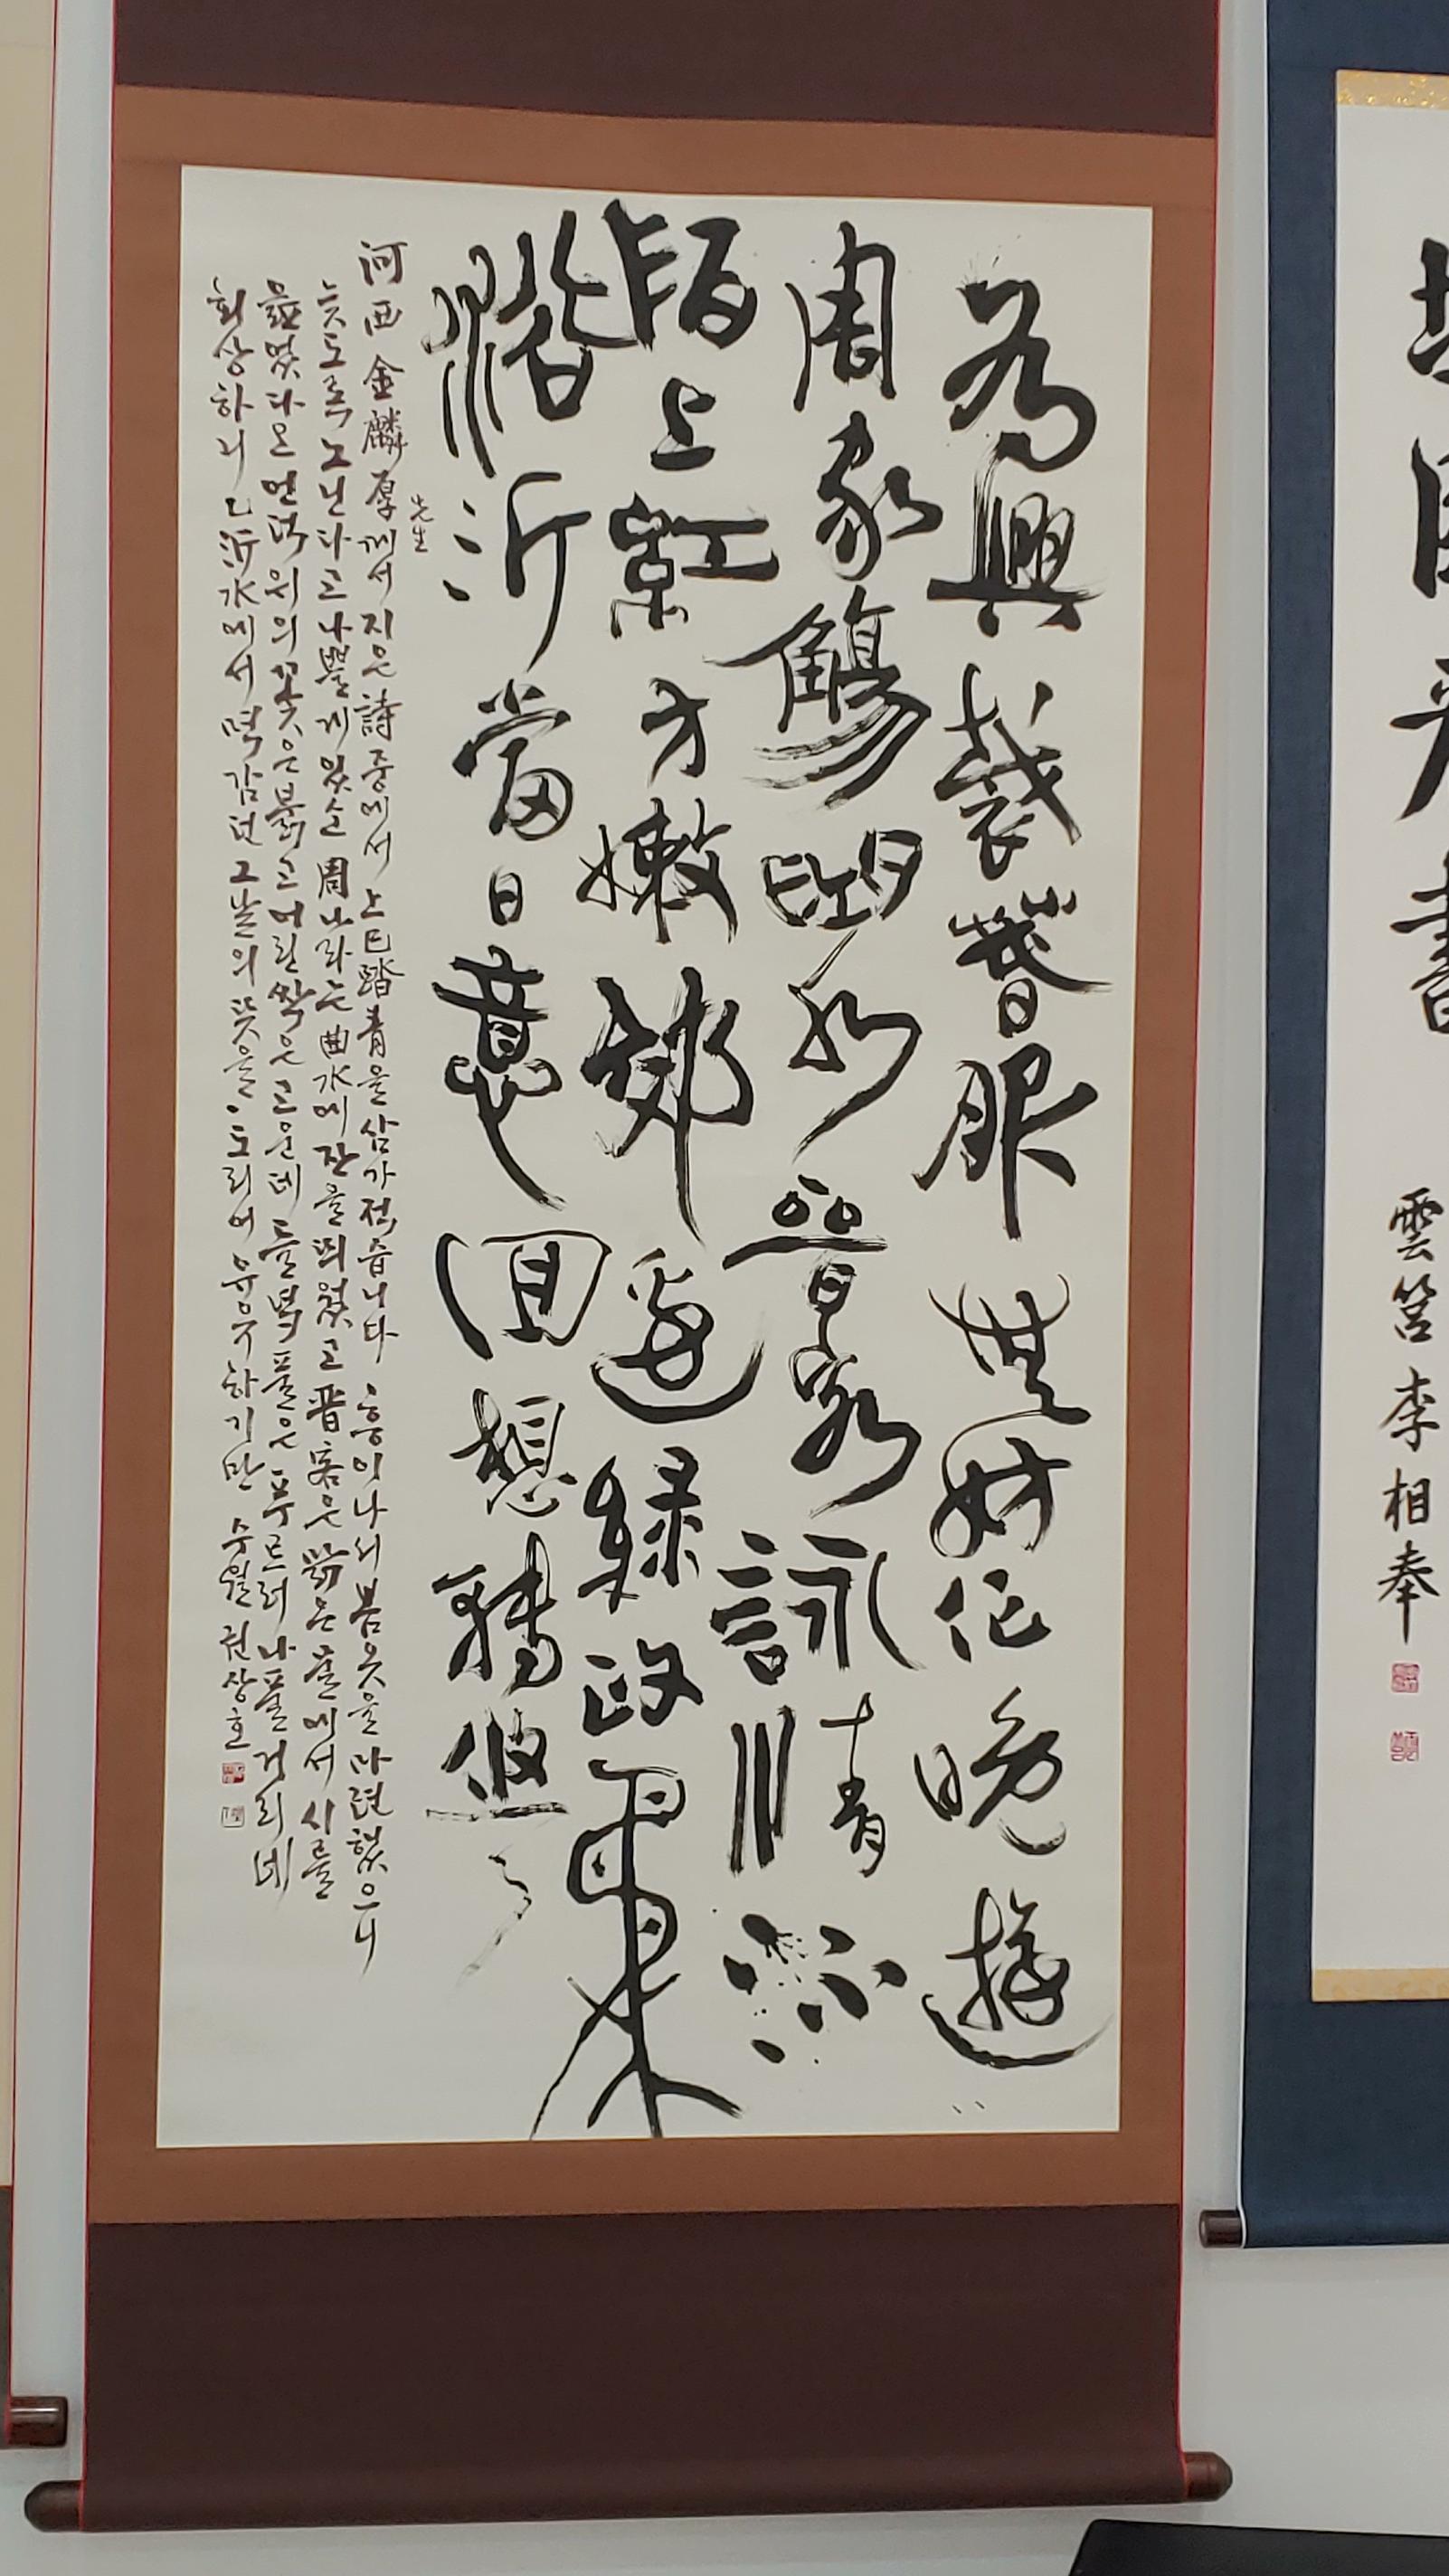 雲筥 李相奉
為興裁春服無妨作晚遊
周家觴曲水晉客詠清流
陌上紅方嫩郊邊綠政柔
浴沂當日意回想轉悠〻
河西 金麟厚先生께서 지은 詩 중에서 上巳踏青을 삼가 적습니다 흥이 나서 봄옷을 마련했으니
늦도록 노닌다고 나쁠게 있소 周나라는 曲水에 잔을 띄웠고 晋客은 맑은 물에서 시를
읊었다오 언덕 위의 꽃은 붉고 어린싹은 고운데 들녘 풀은 푸르러 나풀거리네
회상하니 沂水에서 멱감던 그날의 뜻을 도리어 유유하기만 수월 권상호